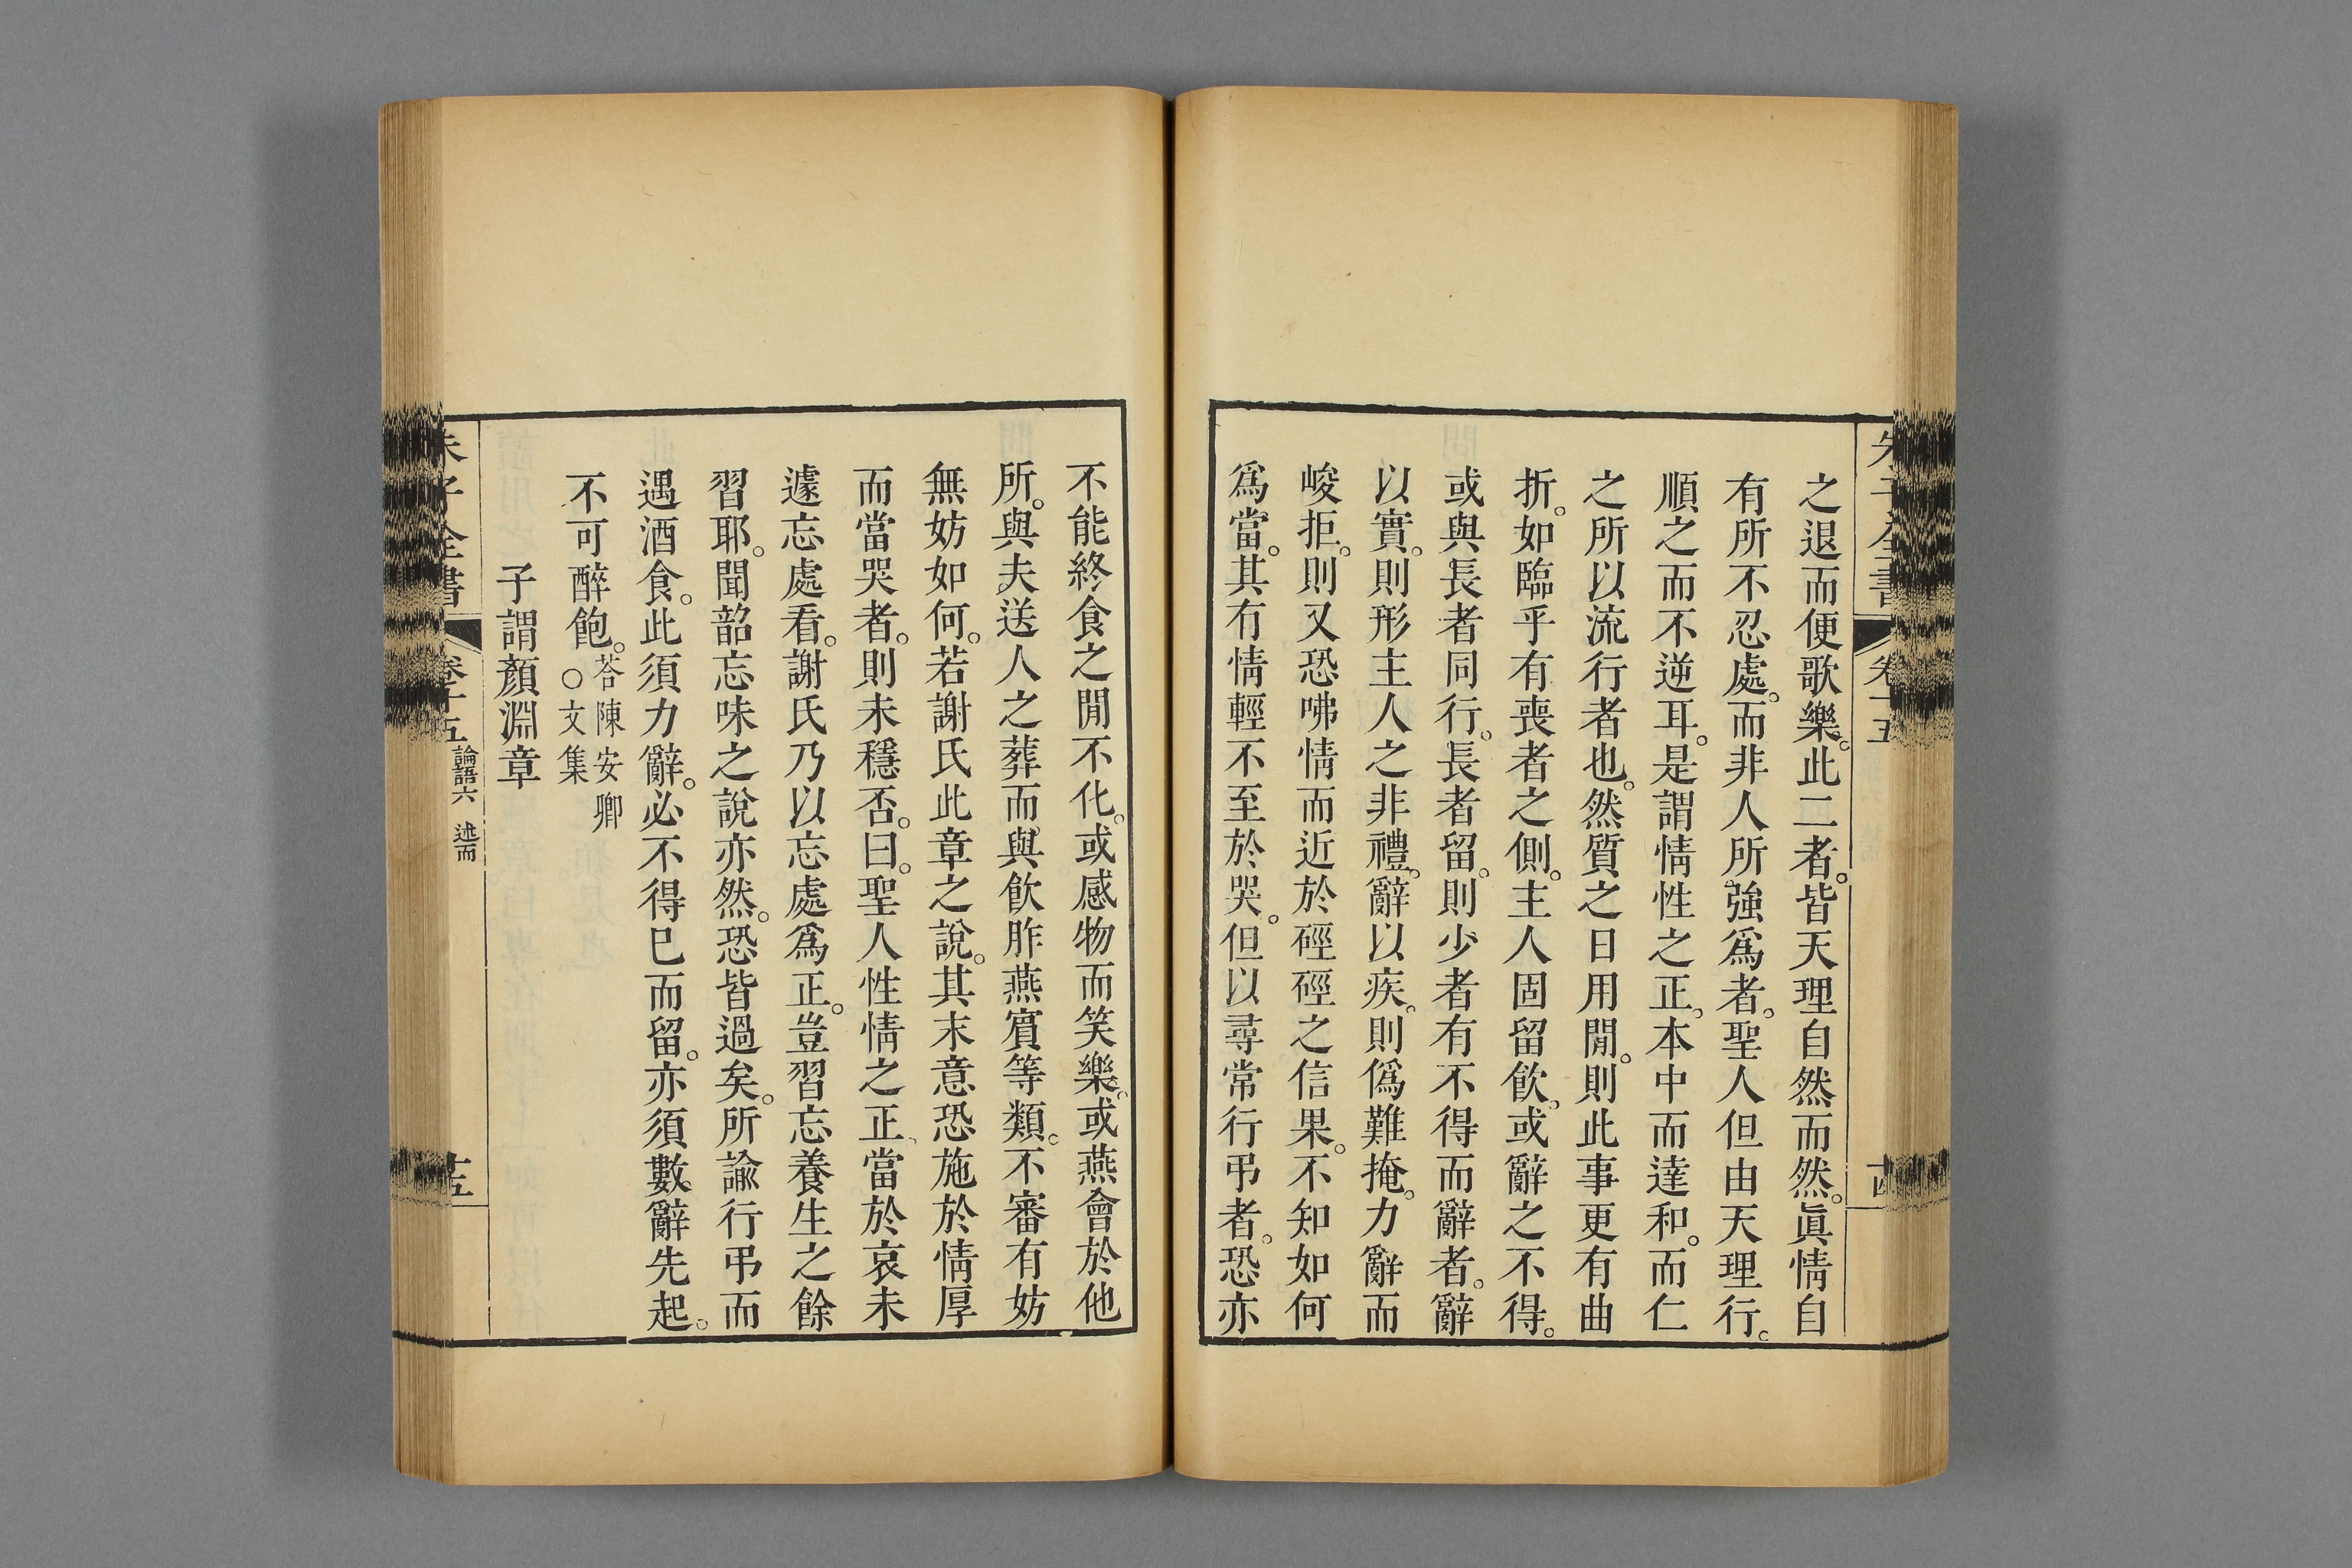 之退而便歌樂。此二者。皆天理自然而然。眞情自
有所不忍處。而非人所強爲者。聖人但由天理行。
順之而不逆耳。是謂情性之正。本中而達和。而仁
之所以流行者也。然質之日用閒。則此事更有曲
折。如臨乎有喪者之側。主人固留飲。或辭之不得。
或與長者同行。長者留。則少者有不得而辭者。辭
以實。則形主人之非禮。辭以疾。則僞難掩。力辭而
峻拒。則又恐咈情而近於硜硜之信果。不知如何
爲當。其有情輕不至於哭。但以尋常行弔者。恐亦
不能終食之閒不化。或感物而笑樂。或燕會於他
所。與夫送人之葬而與飲胙燕賓等類。不審有妨
無妨如何。若謝氏此章之說。其末意恐施於情厚
而當哭者。則未穩否。曰。聖人性情之正、當於哀未
遽忘處看。謝氏乃以忘處爲正。豈習忘養生之餘
習耶。聞韶忘味之說亦然。恐皆過矣。所諭行弔而
遇酒食。此須力辭。必不得巳而留。亦須數辭先起。
不可醉飽。荅陳安卿○文集
子謂顏淵章
朱子全書
卷十五
論語六 述而
十五